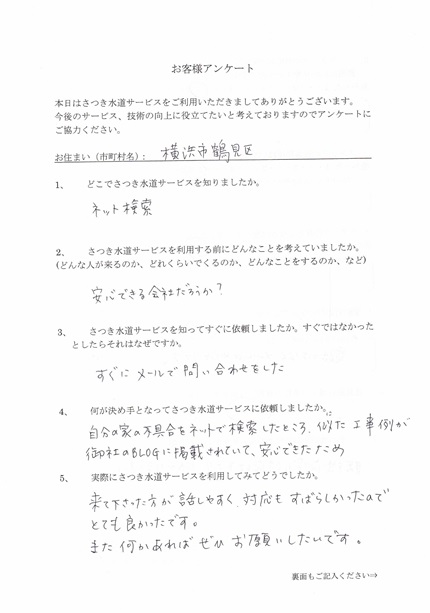 お客様アンケート
本日はさつき水道サービスをご利用いただきましてありがとうございます。
今後のサービス、技術の向上に役立てたいと考えておりますのでアンケートに
ご協力ください。
お住まい（市町村名）： 横浜市鶴見区
1、 どこでさつき水道サービスを知りましたか。
ネット検索
2、 さつき水道サービスを利用する前にどんなことを考えていましたか。
(どんな人が来るのか、どれくらいでくるのか、どんなことをするのか、など)
安心できる会社だろうか？
3、 さつき水道サービスを知ってすぐに依頼しましたか。すぐではなかった
としたらそれはなぜですか。
すぐに メールで 問い合わせをした
4、 何が決め手となってさつき水道サービスに依頼しましたか。
自分の家の不具合をネットで検索したところ、似た工事例が
御社のBLOGに掲載されていて、安心できたため
5、 実際にさつき水道サービスを利用してみてどうでしたか。
来て下さった方が話しやすく、対応もすばらしかったので
とても良かったです。
また何かあれば ぜひ お願いしたいです。
裏面もご記入ください⇒